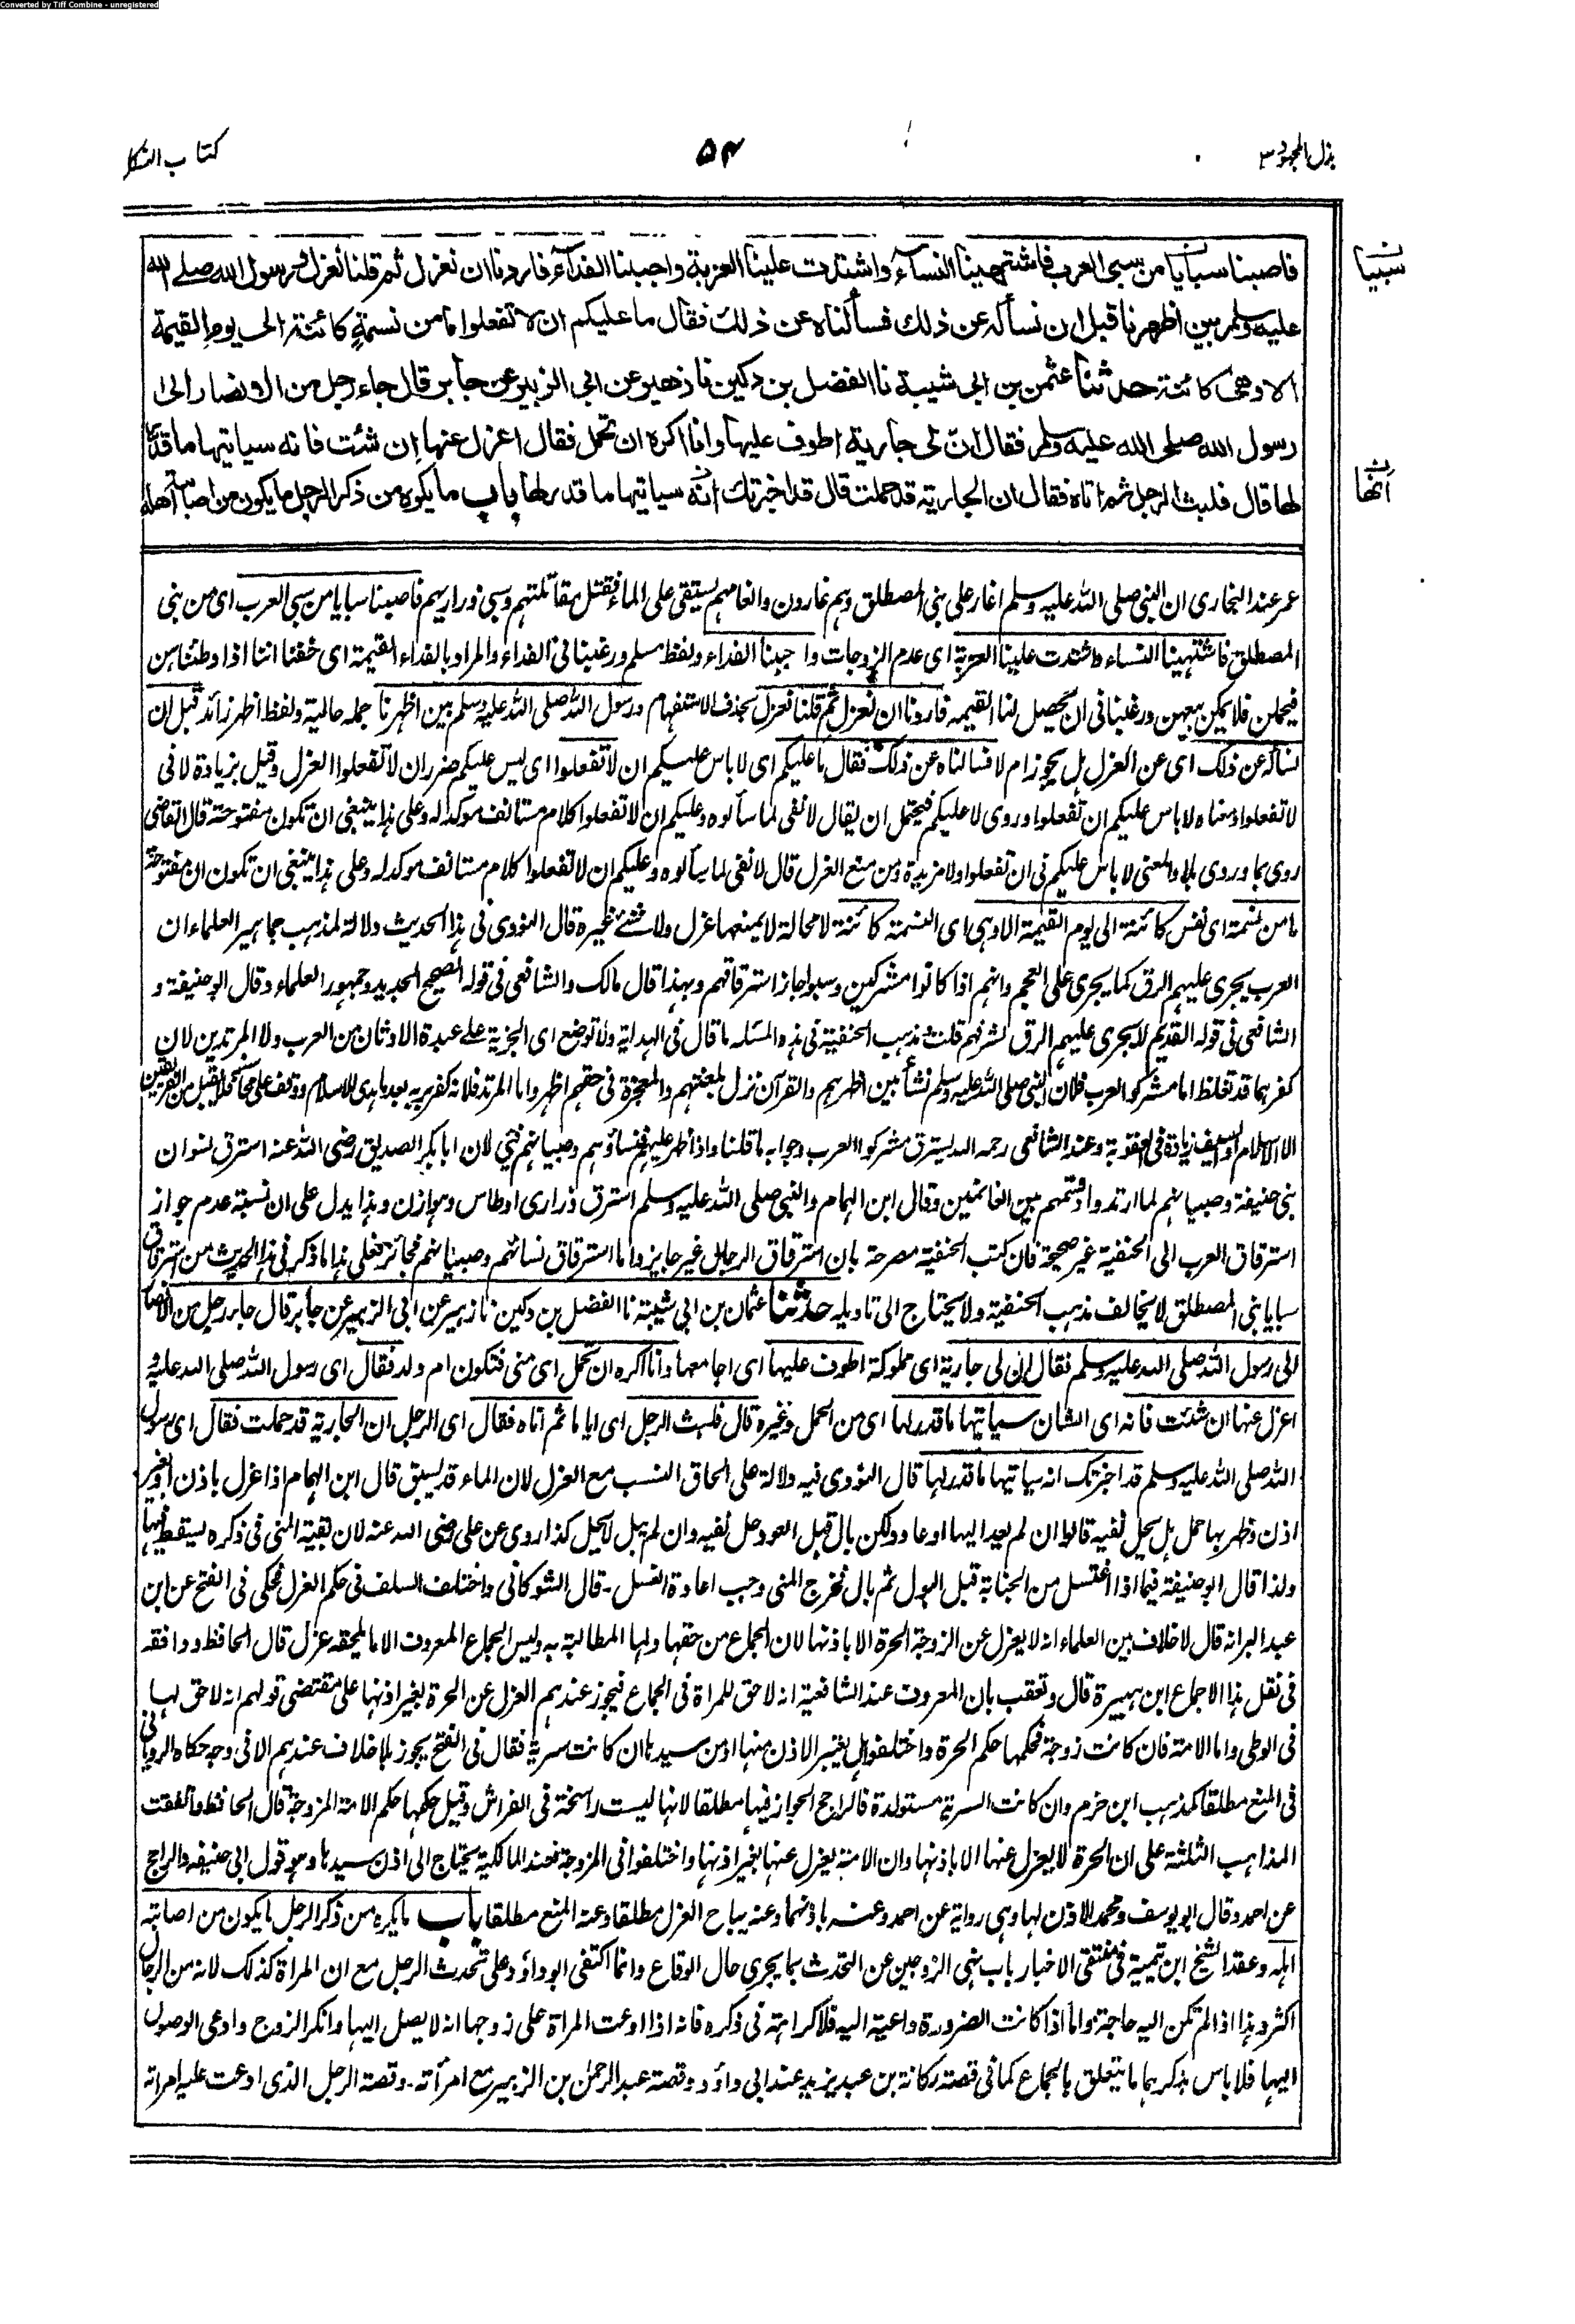 Converted by Tiff Combine - unregistered
بذل المجهود ٣
٥٤
كتاب النكاح
فاصبنا سبايا من سبى العرب فاشتهينا النساء واشتدت علينا العزبة واحببنا الفداء فاردنا ان نعزل ثم قلنا نعزل ورسول الله صلے الله
سبيا
عليه وسلم بين اظهرنا قبل ان نسأله عن ذلك فسألناه عن ذلك فقال ما عليكم ان لا تفعلوا ما من نسمةٍ كائنة الى يوم القيمة
الا وهى كائنة حدثنا عثمن بن ابى شيبة نا الفضل بن دكين نا زهير عن ابى الزبير عن جابر قال جاء رجل من الانصار الى
رسول الله صلى الله عليه وسلم فقال انّ لى جارية اطوف عليها وانا اكره ان تحمل فقال اعزل عنها ان شئت فانه سياتيها ما قدر
لها قال فلبث الرجل ثم اتاه فقال ان الجارية قد حملت قال قد اخبرتك انه سياتيها ما قدر لها باب ما يكره من ذكر الرجل ما يكون من اصابته اهله
انها
عمر عند البخارى ان النبى صلى الله عليه وسلم اغار على بنى المصطلق وهم غارون وانعامهم تستقى على الماء فقتل مقاتلتهم وسبى ذراريهم فاصبنا سبايا من سبى العرب اى من بنى
المصطلق فاشتهينا النساء واشتدت علينا العزبة اى عدم الزوجات واحببنا الفداء ولفظ مسلم ورغبنا فى الفداء والمراد بالفداء القيمة اى خفنا اننا اذا وطئناهن
فيحملن فلا يمكن بيعهن ورغبنا فى ان تحصل لنا القيمة فاردنا ان نعزل ثم قلنا نعزل بحذف الاستفهام ورسول الله صلى الله عليه وسلم بين اظهرنا جملة حالية ولفظ اظهر زائد قبل ان
نسأله عن ذلك اى عن العزل هل يجوز ام لا فسالناه عن ذلك فقال ما عليكم اى لا باس عليكم ان لا تفعلوا اى ليس عليكم ضرر ان لا تفعلوا العزل وقيل بزيادة لا فى
لا تفعلوا ومعناه لا باس عليكم ان تفعلوا وروى لا عليكم فيحتمل ان يقال لا نفى لما سألوه وعليكم ان لا تفعلوا كلام مستانف موكد له وعلى هذا ينبغى ان تكون مفتوحة قال القاضى
روى بما وروى بلا والمعنى لا باس عليكم فى ان تفعلوا ولا مزيدة ومن منع العزل قال لا نفى لما سألوه وعليكم ان لا تفعلوا كلام مستانف موكد له وعلى هذا ينبغى ان تكون ان مفتوحة
ما من نسمة اى نفس كائنة الى يوم القيمة الا وهى اى النسمة كائنة لا محالة لا يمنعها عزل ولا شئ غيره قال النووى فى هذا الحديث دلالة لمذهب جماهير العلماء ان
العرب يجرى عليهم الرق كما يجرى على العجم وانهم اذا كانوا مشركين وسبوا جاز استرقاقهم وبهذا قال مالك والشافعى فى قوله الصحيح الجديد وجمهور العلماء وقال ابو حنيفة و
الشافعى فى قوله القديم لا يجرى عليهم الرق لشرفهم قلت مذهب الحنفية فى هذه المسئله ما قال فى الهداية ولا توضع اى الجزية علے عبدة الاوثان من العرب ولا المرتدين لان
كفرهما قد تغلظ اما مشركو العرب فلان النبى صلى الله عليه وسلم نشأ بين اظهرهم والقرآن نزل بلغتهم والمعجزة فى حقهم اظهر واما المرتد فلانه كفر بربه بعد ما هدى للاسلام ووقف على محاسنه فلا يقبل من الفريقين
الا الاسلام او السيف زيادة فى العقوبة وعند الشافعى رحمه الله يسترق مشركو العرب وجوابه ما قلنا واذا ظهر عليهم فنساؤهم وصبيانهم فئ لان ابا بكر الصديق رضى الله عنه استرق نسوان
بنى حنيفة وصبيانهم لما ارتدوا وقسمهم بين الغانمين وقال ابن الهمام والنبى صلى الله عليه وسلم استرق ذرارى اوطاس وهوازن وهذا يدل على ان نسبة عدم جواز
استرقاق العرب الى الحنفية غير صحيحة فان كتب الحنفية مصرحة بان استرقاق الرجال غير جايز واما استرقاق نسائهم وصبيانهم فجائز فعلى هذا ما ذكر فى هذا الحديث من استرقاق
سبايا بنى المصطلق لا يخالف مذهب الحنفية ولا يحتاج الى تاويله حدثنا عثمان بن ابى شيبة نا الفضل بن دكين نا زهير عن ابى الزبير عن جابر قال جاء رجل من الانصار
الى رسول الله صلى الله عليه وسلم فقال ان لى جارية اى مملوكة اطوف عليها اى اجامعها وانا اكره ان تحمل اى منى فتكون ام ولد فقال اى رسول الله صلى الله عليه و
اعزل عنها ان شئت فانه اى الشان سياتيها ما قدر لها اى من الحمل وغيره قال فلبث الرجل اى اياما ثم اتاه فقال اى الرجل ان الجارية قد حملت فقال اى رسول
الله صلى الله عليه وسلم قد اخبرتك انه سياتيها ما قدر لها قال النووى فيه دلالة على الحاق النسب مع العزل لان الماء قد يسبق قال ابن الهمام اذا عزل باذن او بغير
اذن وظهر بها حمل هل يحل نفيه قالوا ان لم يعد اليها او عاد ولكن بال قبل العود حل نفيه وان لم يبل لا يحل كذا روى عن على رضى الله عنه لان بقية المنى فى ذكره يسقط فيها
ولذا قال ابو حنيفة فيما اذا اغتسل من الجنابة قبل البول ثم بال فخرج المنى وجب اعادة الغسل - قال الشوكانى واختلف السلف فى حكم العزل فحكى فى الفتح عن ابن
عبد البر انه قال لا خلاف بين العلماء انه لا يعزل عن الزوجة الحرة الا باذنها لان الجماع من حقها ولها المطالبة به وليس الجماع المعروف الا ما لا يلحقه عزل قال الحافظ ووافقه
فى نقل هذا الاجماع ابن هبيرة قال وتعقب بان المعروف عند الشافعية انه لا حق للمراة فى الجماع فيجوز عندهم العزل عن الحرة بغير اذنها على مقتضى قولهم انه لا حق لها
فى الوطى واما الامة فان كانت زوجة فحكمها حكم الحرة واختلفوا هل يعتبر الاذن منها او من سيدها وان كانت سرية فقال فى الفتح يجوز بلا خلاف عندهم الا فى وجه حكاه الرويانى
فى المنع مطلقا كمذهب ابن حزم وان كانت السرية مستولدة فالراجح الجواز فيها مطلقا لانها ليست راسخة فى الفراش وقيل حكمها حكم الامة المزوجة قال الحافظ واتفقت
المذاهب الثلثة على ان الحرة لا يعزل عنها الا باذنها وان الامة يعزل عنها بغير اذنها واختلفوا فى المزوجة فعند المالكية يحتاج الى اذن سيدها وهو قول ابى حنيفه والراجح
عن احمد وقال ابو يوسف ومحمد الاذن لها وهى رواية عن احمد وعنه باذنهما وعنه يباح العزل مطلقا وعنه المنع مطلقا باب ما يكره من ذكر الرجل ما يكون من اصابته
اهله وعقد الشيخ ابن تيمية فى منتقى الاخبار باب نهى الزوجين عن التحدث بما يجرى حال الوقاع وانما اكتفى ابو داؤد على تحدث الرجل مع ان المراة كذلك لانه من الرجال
اكثر وهذا اذا لم تكن اليه حاجة واما اذا كانت الضرورة داعية اليه فلا كراهة فى ذكره فانه اذا ادعت المراة على زوجها انه لا يصل اليها وانكر الزوج وادعى الوصول
اليها فلا باس بذكرهما ما يتعلق بالجماع كما فى قصة ركانة بن عبد يزيد عند ابى داؤد وقصة عبد الرحمٰن بن الزبير مع امرأته - وقصة الرجل الذى ادعت عليه امراته